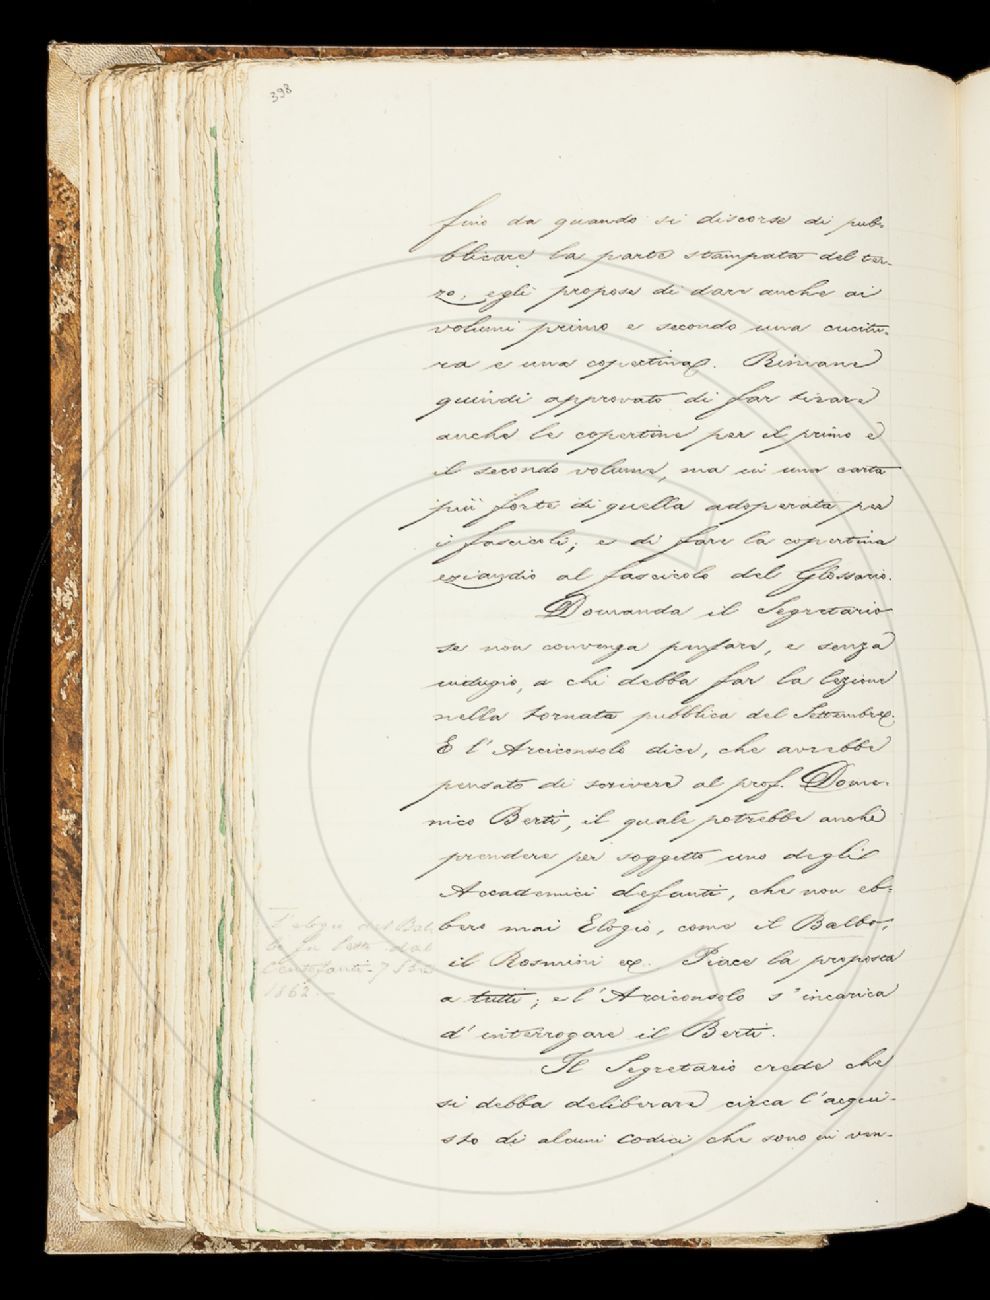 398
fino da quando si discorse di pub-
blicare la parte stampata del ter-
zo, egli propose di dare anche ai
volumi primo e secondo una cucitu-
ra e una copertina. Rimane
quindi approvato di far tirare
anche le copertine per il primo e
il secondo volume, ma in una carta
più forte di quella adoperata per
i fascicoli; e di fare la copertina
eziandio al fascicolo del Glossario.
Domanda il Segretario
se non convenga pensare, e senza
indugio, a chi debba far la lezione
nella tornata pubblica del Settembre.
E l'Arciconsolo dice, che avrebbe
pensato di scrivere al prof. Dome-
nico Berti, il quale potrebbe anche
prendere per soggetto uno degli
Accademici defunti, che non eb-
bero mai Elogio, come il Balbo,
il Rosmini ec. Piace la proposta
a tutti; e l'Arciconsolo s'incarica
d'interrogare il Berti.
Il Segretario crede che
si debba deliberare circa l'acqui-
sto di alcuni codici che sono in ven-
L'elogio del Bal-
bo fu letto dal
Centofanti 7 Sbre
1862.